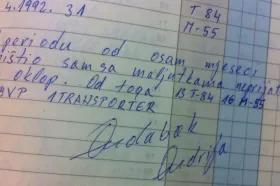 4.1992. 31 T 84
M-55
periodu od osam mjeseci
ištio sam sa maljutkama neprijat
oklop. Od toga 13 T-84 16 M-55
BVP 1 TRANSPORTER
Andabak
Andrija